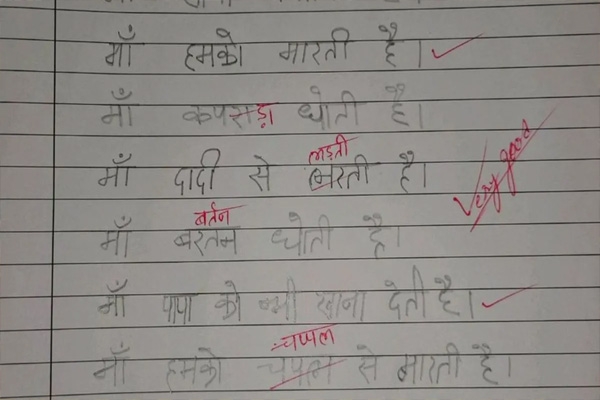 माँ हमको मारती है।
माँ कपड़ा धोती है।
लड़ती
माँ दादी से लरती है।
Very good
बर्तन
माँ बरतन धोती है।
माँ पापा को भी खाना देती है।
चप्पल
माँ हमको चपल से मारती है।